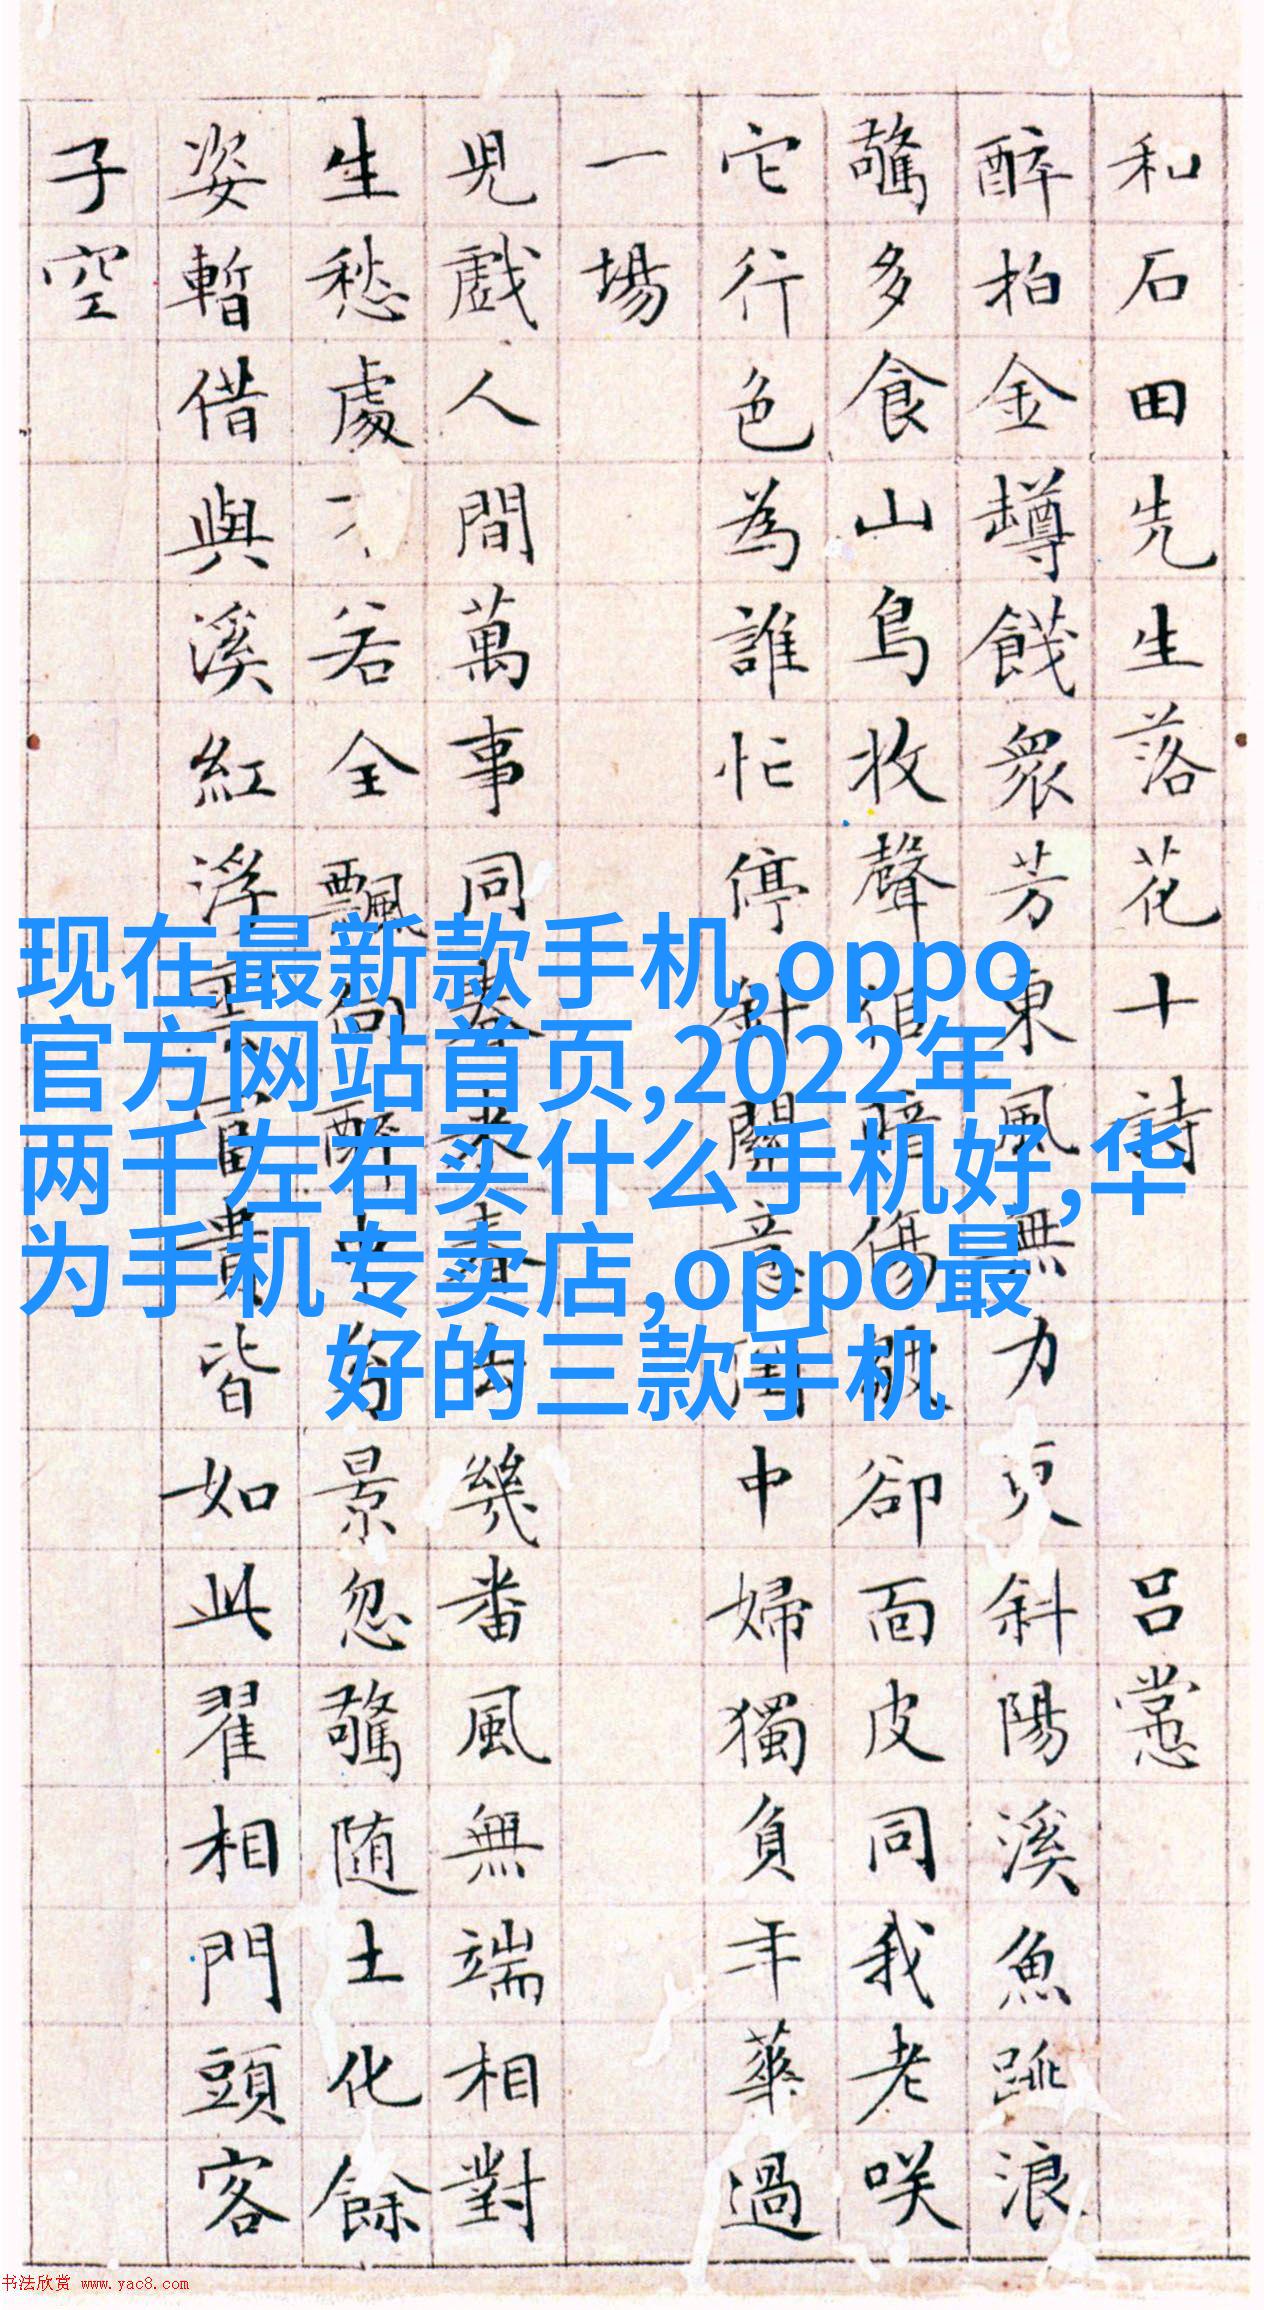 和石田先生落花十詩 呂
醉拍金罇餞眾芳東風無力更斜陽溪魚跳浪
驚多食山鳥收聲暗傷卻面皮同我老咲
它行色為誰忙停針關意閨中婦獨負年華過
一場
兒戲人間萬事同春來春去幾番風無端相對
生愁處若全飄向醉中景忽驚随土化餘
姿暫借與溪紅浮雲富貴皆如此翟相門頭客
子空
现在最新款手机,oppo
官方网站首页,2022年
两千左右买什么手机好,华
为手机专卖店,oppo最
好的三款手机
书法欣赏 www.yac8.com